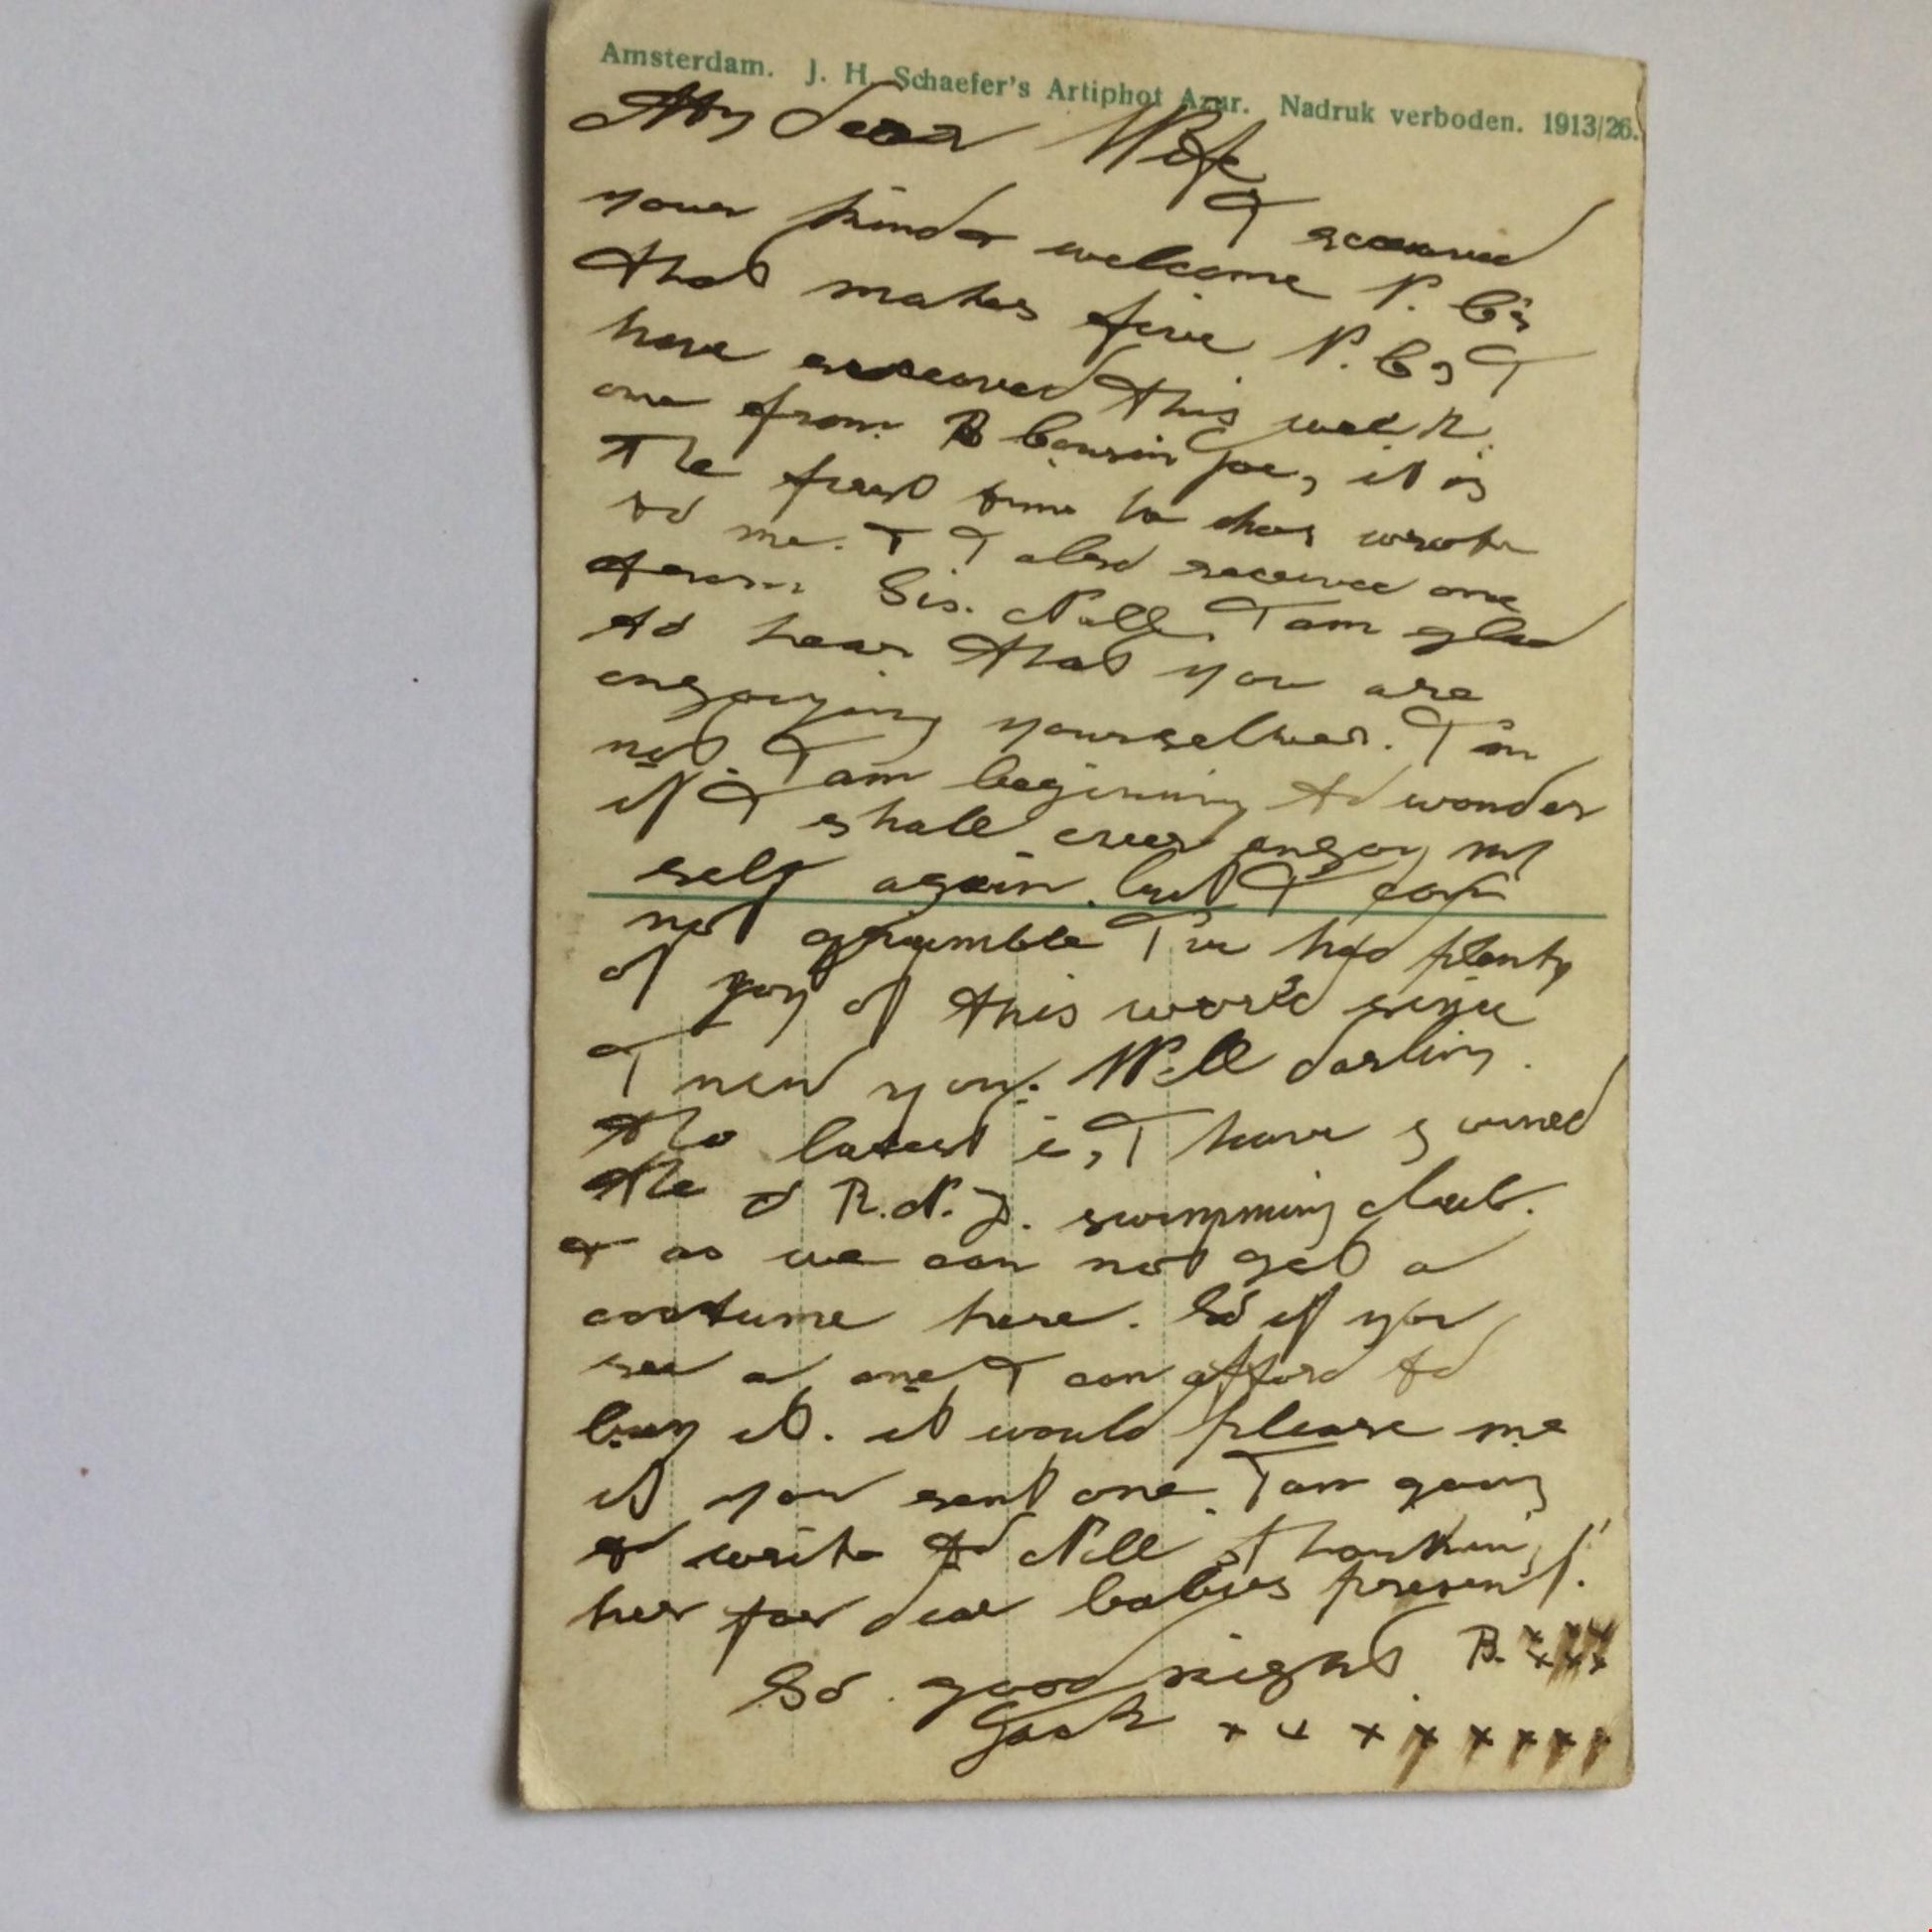 Amsterdam. J. H. Schaefer's Artiphot Azur. Nadruk verboden. 1913/26.
My dear Wife
I received
your kinder welcome P. C's
that makes five P. Cs I
have received this week.
one from B Cousin Joe, it is
the first time he has wrote
to me. I also received one
from Sis. Nell. I am glad
to hear that you are
engoying yourselves. I'm
not. I am beginning to wonder
if I shall ever engoy my
self again. but I can
not grumble I've had plenty
of goy of this world since
I new you. Well darling.
the latest is, I have goined
the R.N.D. swimming club.
& as we can not get a
costume here. So if you
see a one I can afford to
buy it. it would please me
if you sent one. I am going
to write to Nell, thanking
her for dear babies present.
So good night B. x x x x x x
Jack x x x x x x x x